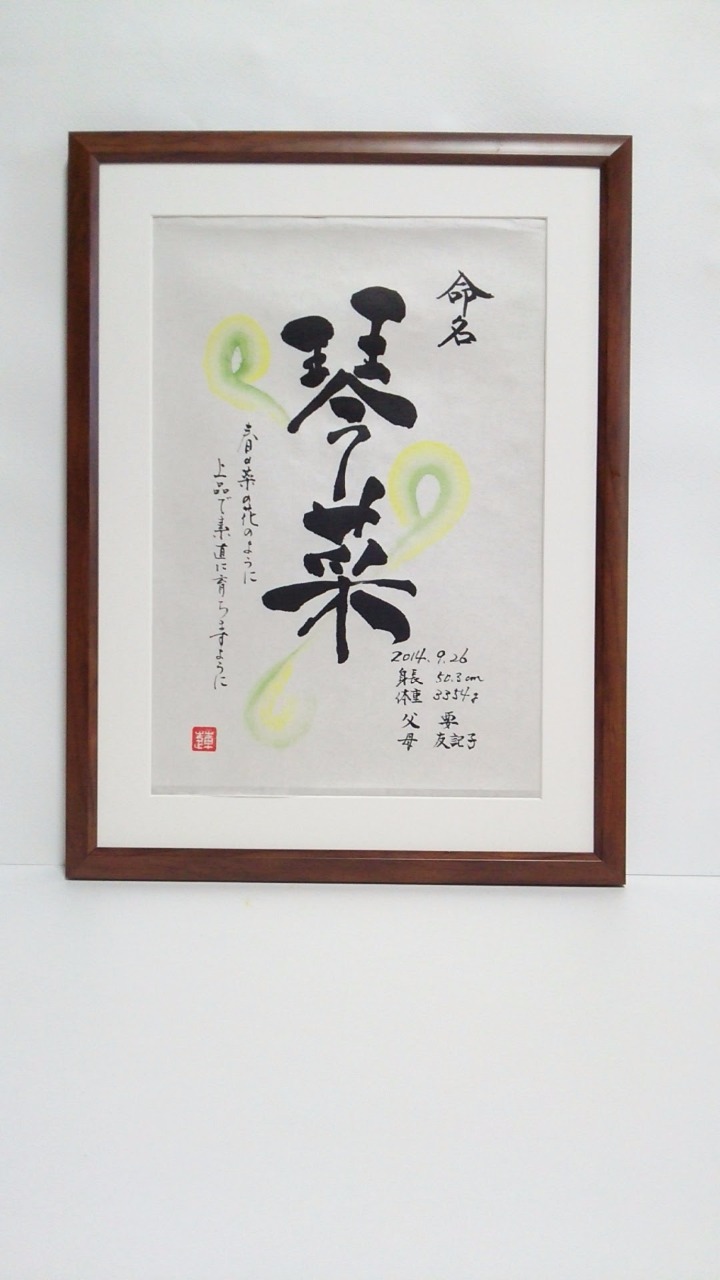 命名
琴菜
春の菜の花のように
上品で素直に育ちますように
2014.9.26
身長 50.3cm
体重 3354g
父 栗
母 友記子
蓮